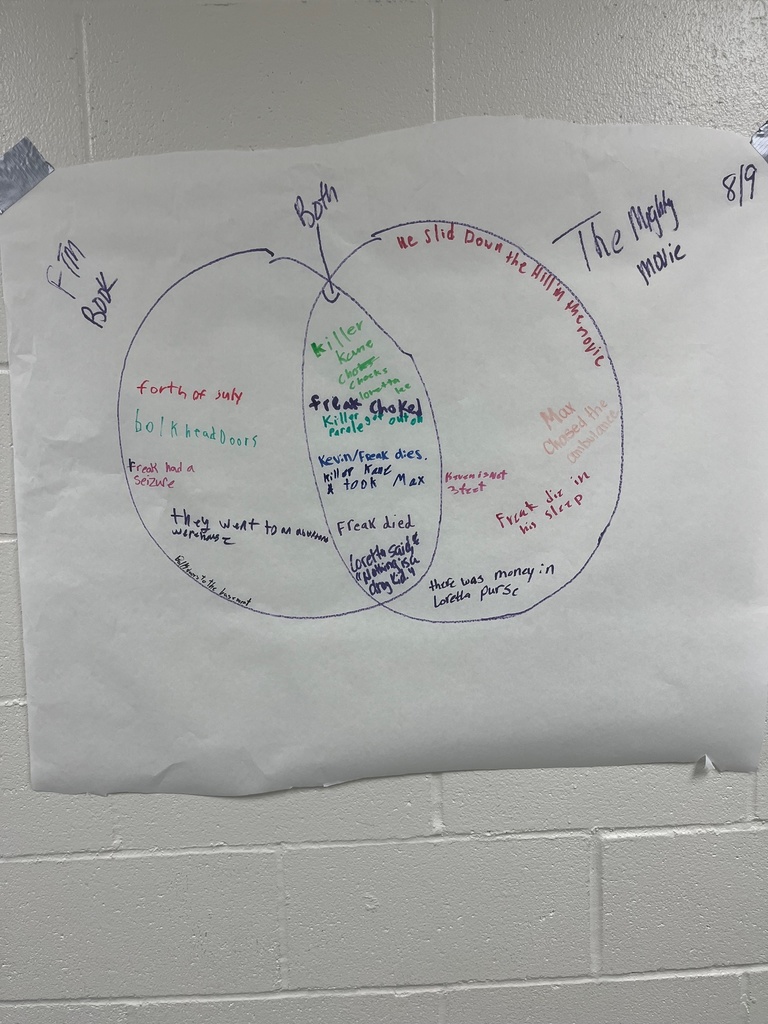 Both
8/9
The Mighty
movie
FTM
BOOK
He Slid Down the Hill in the movie
forth of july
bolkheadDoors
Freak had a
Seizure
they went to an
warehouse
to the basement
Killer
Kane
Chocks
loretta
freak choked
Killer
out on
Kevin/Freak dies.
Killer Kane
took Max
Freak died
Loretta said
"Nothing is a
drag Kid."
Max
Chased the
ambulance
Keven is Not
Street
Freak die in
his sleep
there was money in
Loretta purse